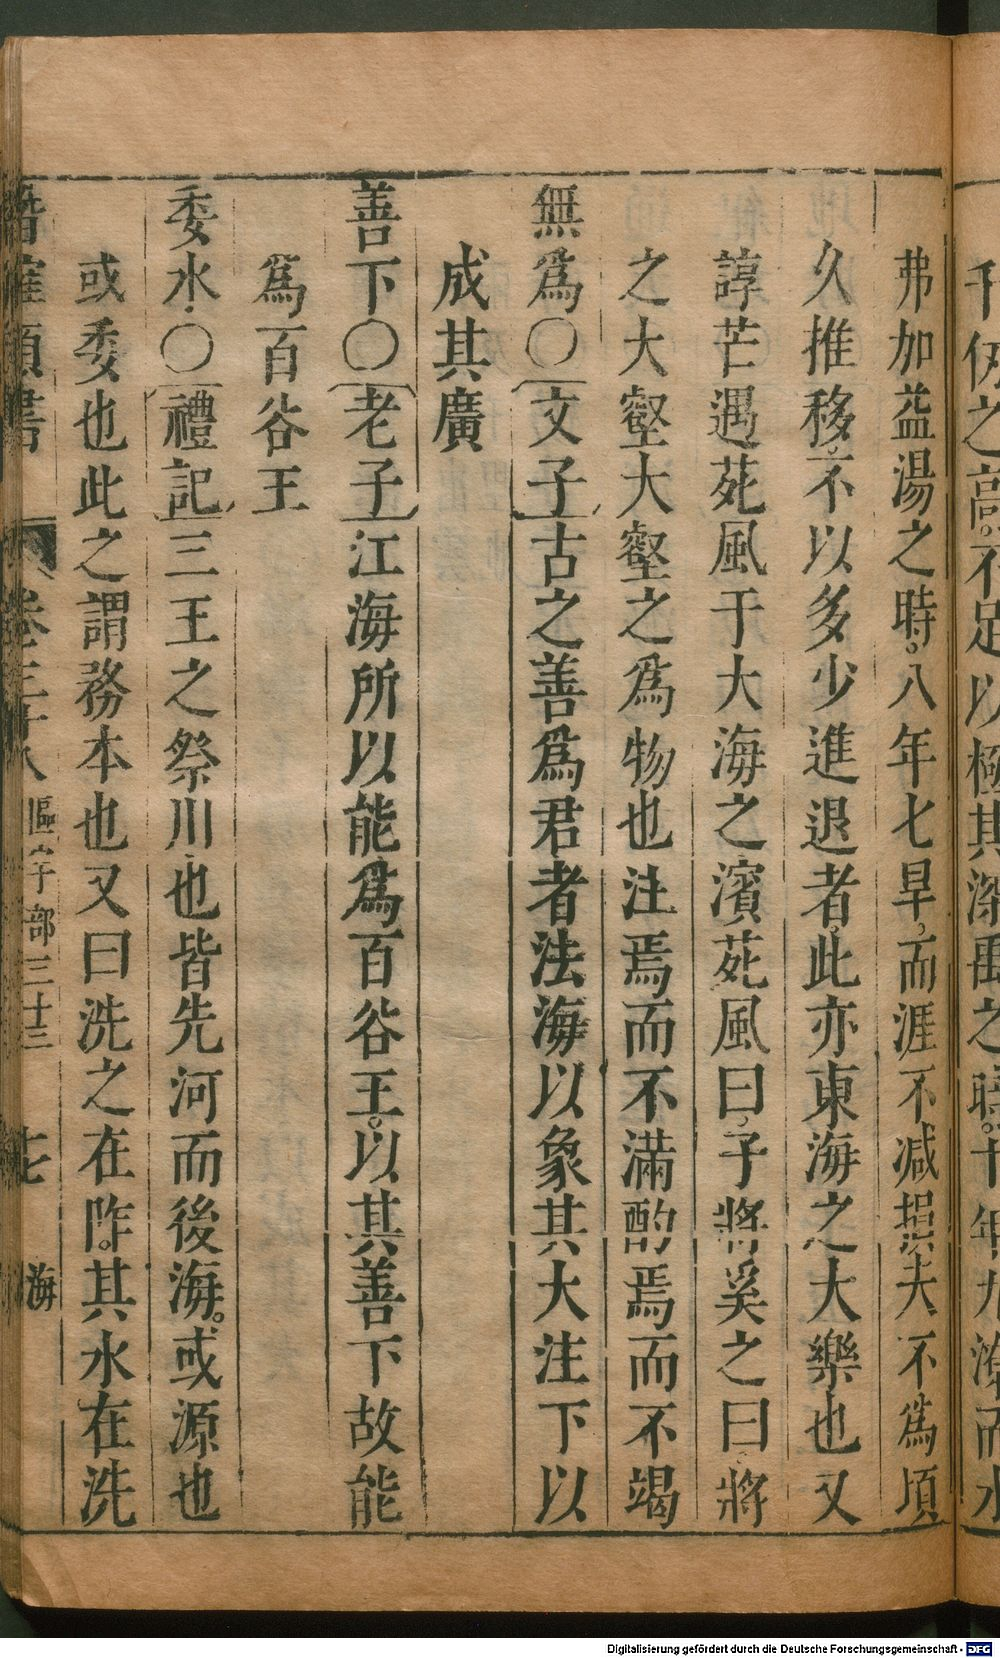 千仞之高不足以極其深禹之時十年九潦而水
弗加益湯之時八年七旱而涯不減損夫不爲頃
久推移不以多少進退者此亦東海之大樂也又
諄芒遇苑風于大海之濱苑風曰子將奚之曰將
之大壑大壑之爲物也注焉而不滿酌焉而不竭
無爲〇文子古之善爲君者法海以象其大注下以
成其廣
善下〇老子江海所以能爲百谷王以其善下故能
爲百谷王
委水〇禮記三王之祭川也皆先河而後海或源也
或委也此之謂務本也又曰洗之在阼其水在洗
潛確類書 卷三十八 區宇部三十三 海
Digitalisierung gefördert durch die Deutsche Forschungsgemeinschaft - DFG